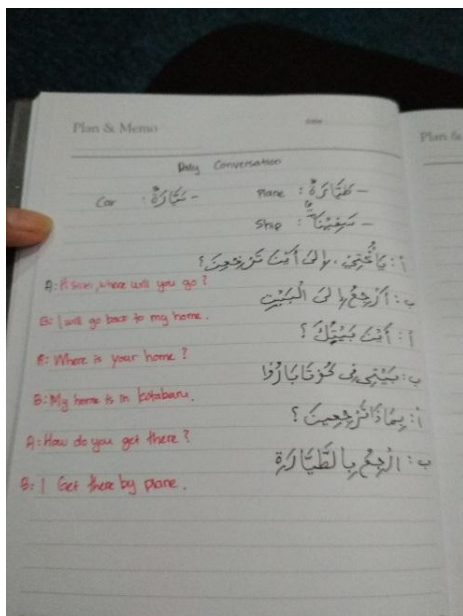 Plan & Memo
Date
Plan &
Daily Conversation
Car : سَيَّارَةٌ - Plane : طَيَّارَةٌ -
Ship : سَفِيْنَةٌ -
أ : يَا أُخْتِيْ، إِلَى أَيْنَ تَرْجِعِيْنَ؟
A: A sister, where will you go?
ب : أَرْجِعُ إِلَى الْبَيْتِ
B: I will go back to my home.
أ : أَيْنَ بَيْتُكِ؟
A: Where is your home?
ب : بَيْتِي فِي كُوْتَابَارُوْا
B: My home is in kotabaru.
أ : بِمَاذَا تَرْجِعِيْنَ؟
A: How do you get there?
ب : ارْجِعُ بِالطَّيَّارَةِ
B: I Get there by plane.